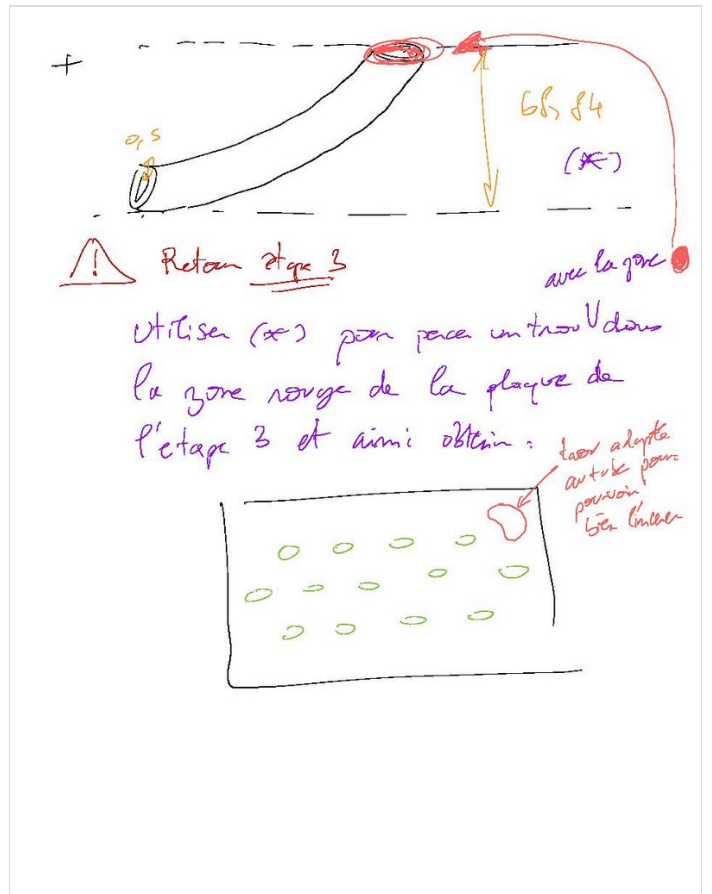 +
0,5
68,84
(*)
! Retour étape 3
avec la zone
Utiliser (*) pour percer un trou V dans
la zone rouge de la plaque de
l'étape 3 et ainsi obtenir :
trou adapté
au tube pour
pouvoir
bien l'insérer